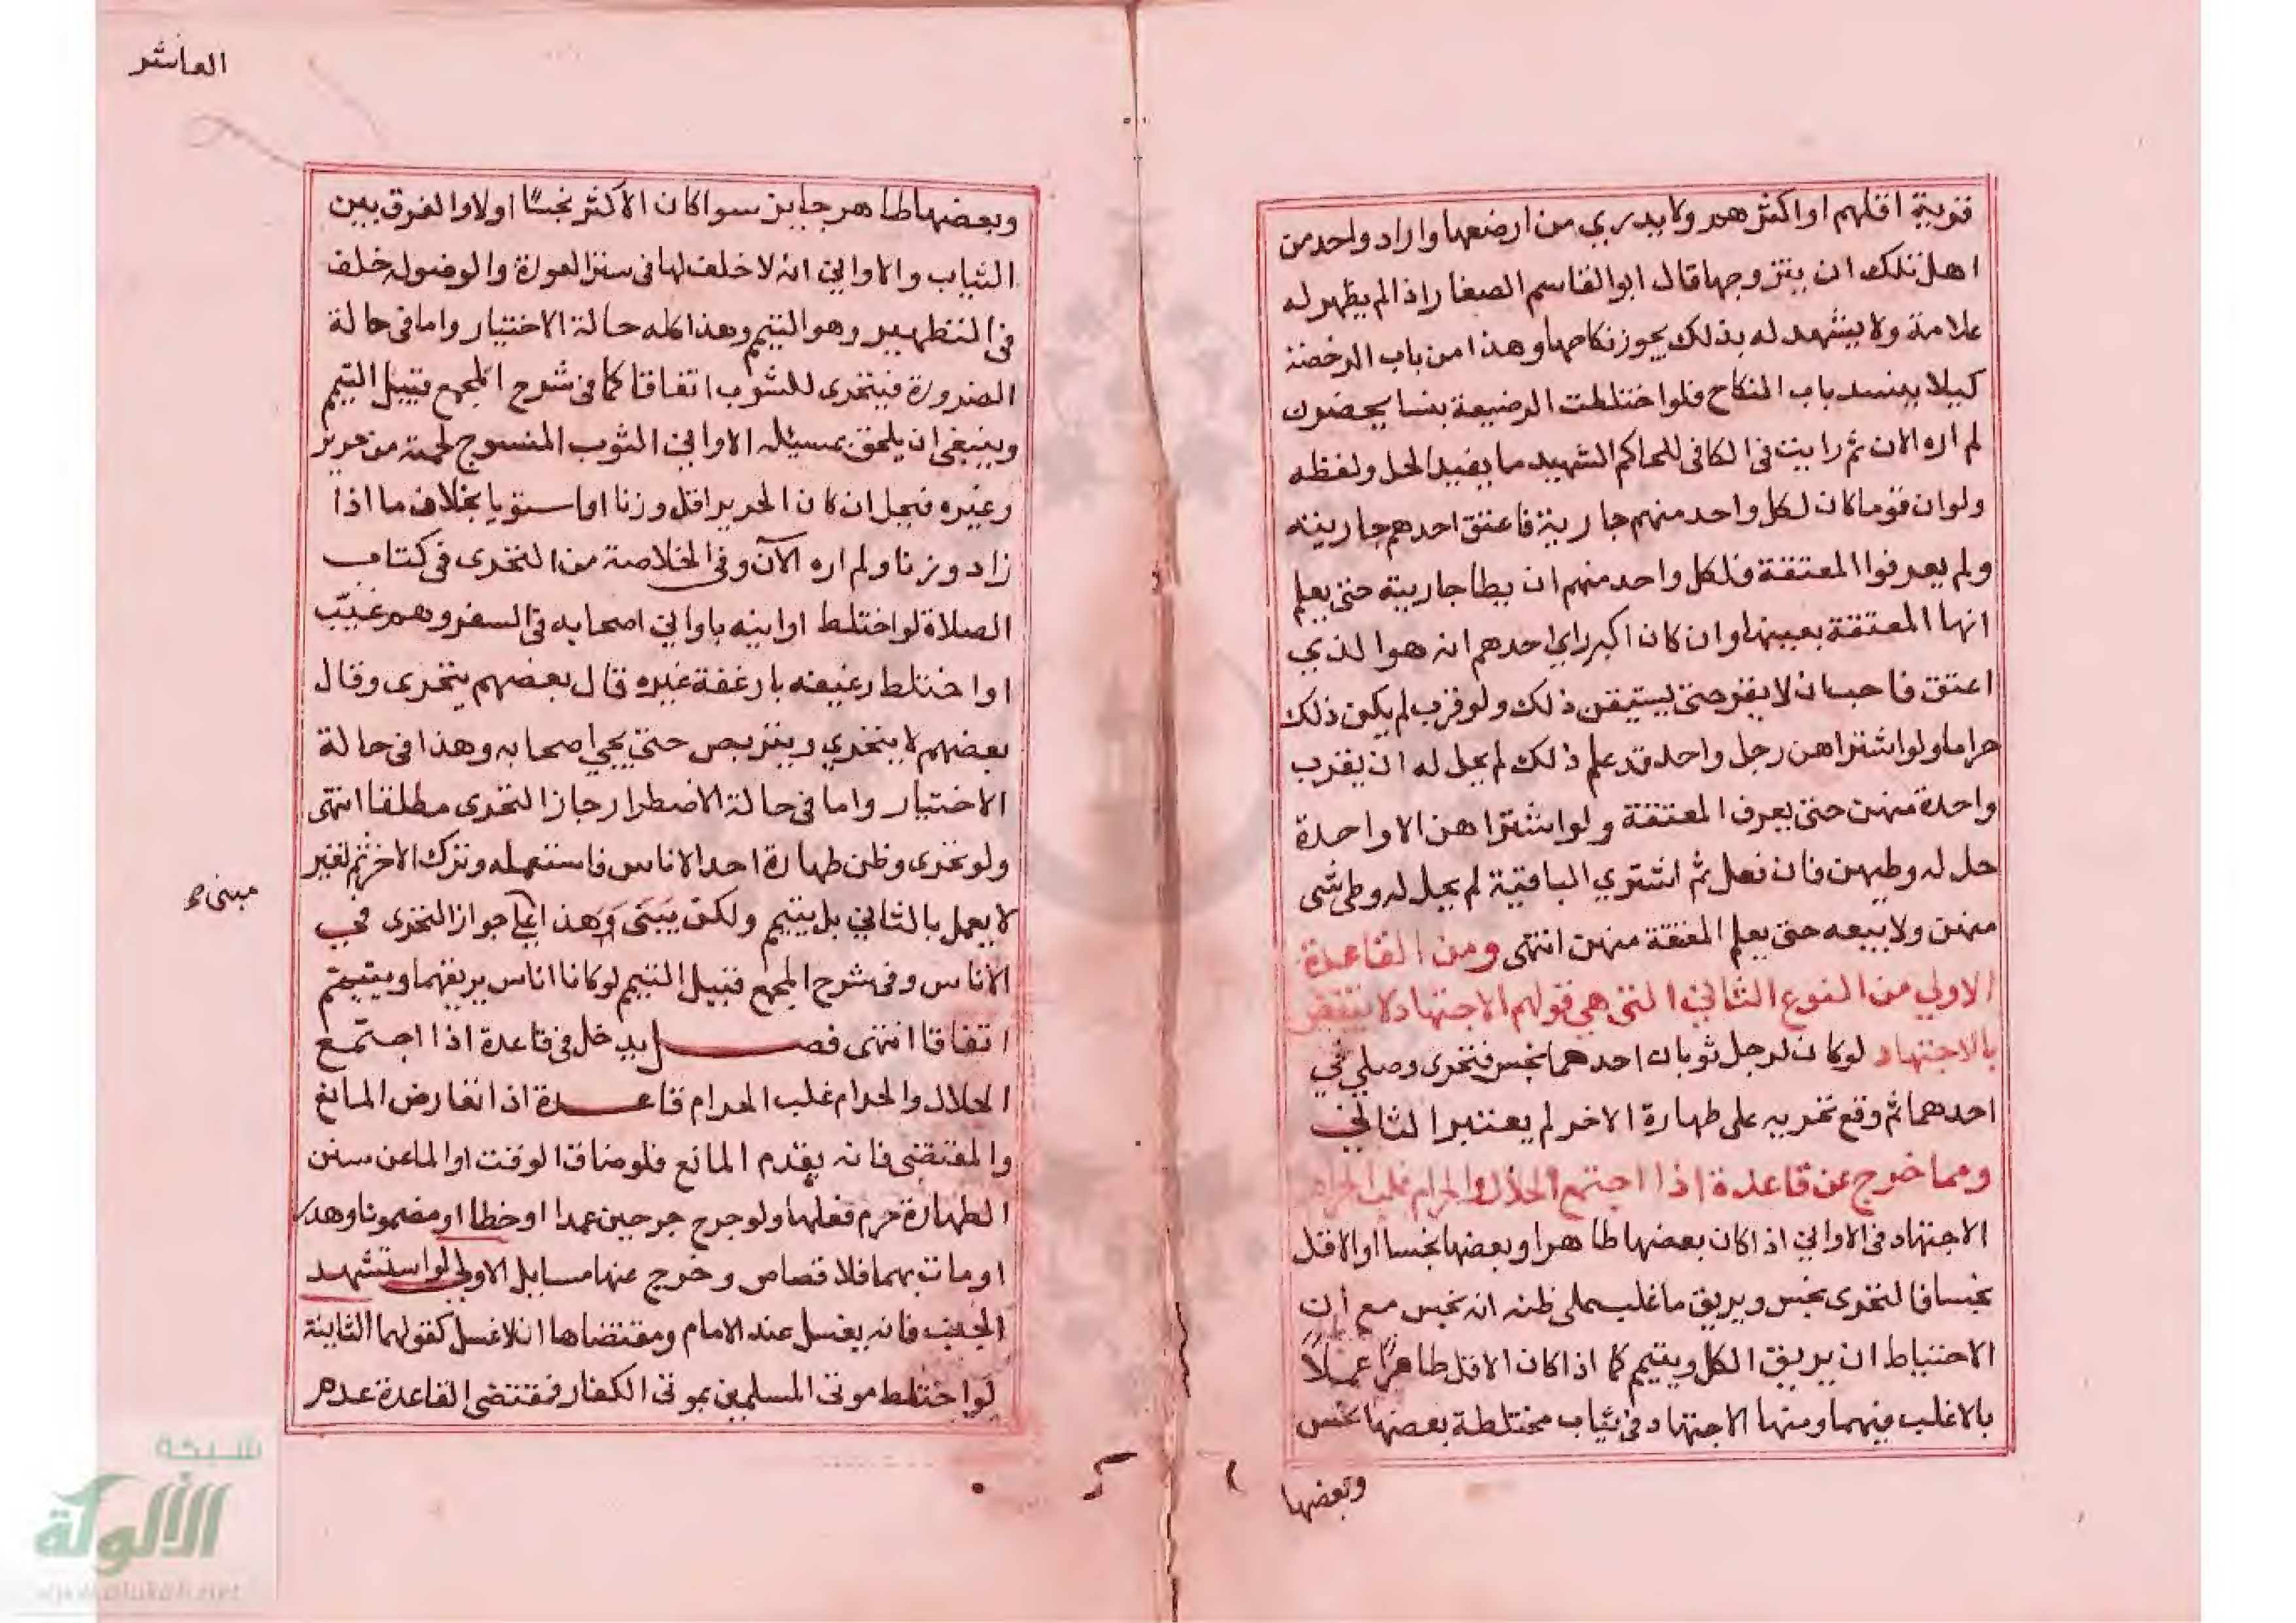 قرية اقلهم او اكثرهم ولا يدري من ارضعها واراد واحد من
اهل تلك ان يتزوجها قال ابو القاسم الصفار اذا لم يظهر له
علامة ولا يشهد له بذلك يجوز نكاحها وهذا من باب الرخصة
كيلا ينسد باب النكاح فلو اختلطت الرضيعة بنسا يحضرن
لم اره الان ثم رايت في الكافي للحاكم الشهيد ما يفيد الحل ولفظه
ولو ان قوما كان لكل واحد منهم جارية فاعتق احدهم جاريته
ولم يعرفوا المعتقة فلكل واحد منهم ان يطا جاريته حتى يعلم
انها المعتقة بعينها وان كان اكبر راي احدهم انه هو الذي
اعتق فاحب ان لا يقر حتى يستيقن ذلك ولو قرب لم يكن ذلك
حراما ولو اشتراهن رجل واحد قد علم ذلك لم يحل له ان يقرب
واحدة منهن حتى يعرف المعتقة ولو اشتراهن الا واحدة
حل له وطيهن فان فعل ثم اشتري الباقية لم يحل له وطى شى
منهن ولا بيعه حتى يعلم المعتقة منهن انتهى ومن القاعدة
الاولي من النوع الثاني التى هي قولهم الاجتهاد لا ينتقض
بالاجتهاد لو كان لرجل ثوبان احدهما نجس فتحرى وصلي في
احدهما ثم وقع تحريه على طهارة الاخر لم يعتبر الثاني
ومما خرج عن قاعدة اذا اجتمع الحلال والحرام غلب الحرام
الاجتهاد في الاواني اذا كان بعضها طاهرا وبعضها نجسا او الاقل
نجسا فالتحرى نجس ويريق ما غلب على ظنه انه نجس مع ان
الاحتياط ان يريق الكل ويتيم كما اذا كان الاقل طاهرًا عملاً
بالاغلب فيهما ومنها الاجتهاد في ثياب مختلطة بعضها نجس
وبعضها
العاشر
وبعضها طاهر جايز سوا كان الاكثر نجسًا اولا والفرق بين
الثياب والاواني انه لا خلف لها في ستر العورة والوضوله خلف
في التطهير وهو التيمم وهذا كله حالة الاختيار واما في حالة
الضرورة فيتحرى للشوب اتفاقا كما في شرح المجمع قبيل التيمم
وينبغي ان يلحق بمسيله الاواني الثوب المنسوج لحمته من حرير
وغيره فيحل ان كان الحرير اقل وزنا او استويا بخلاف ما اذا
زاد وزنا ولم اره الآن وفي الخلاصة من التحرى في كتاب
الصلاة لو اختلط اوانيه باواني اصحابه في السفر وهم غيّب
او اختلط رغيفه بارغفة غيره قال بعضهم يتحرى وقال
بعضهم لا يتحري ويتربص حتى يجي اصحابه وهذا في حالة
الاختيار واما في حالة الاضطرار جاز التحرى مطلقا انتهى
ولو تحرى وظن طهارة احد الاناس فاستعمله وترك الاخر ثم تغير
لا يعمل بالثاني بل يتيم ولكن يبتنى وهذا جواز التحرى في
مبنى ص
الاناس وفي شرح المجمع قبيل التيمم لو كانا اناس يريقهما ويتيمم
اتفاقا انتهى فصل يدخل في قاعدة اذا اجتمع
الحلال والحرام غلب الحرام قاعدة اذا تعارض المانع
والمقتضى فانه يقدم المانع فلو ضاق الوقت او الما عن سنن
الطهارة حرم فعلها ولو جرح جرحين عمدا او خطا او مضمونا وهدر
او مات بهما فلا قصاص وخرج عنها مسايل الاولي لو استشهد
الجنب فانه يغسل عند الامام ومقتضاها ان لا غسل كقولهما الثانية
لو اختلط موتى المسلمين بموتى الكفار فمقتضى القاعدة عدم
شبكة
الألوكة
www.alukah.net